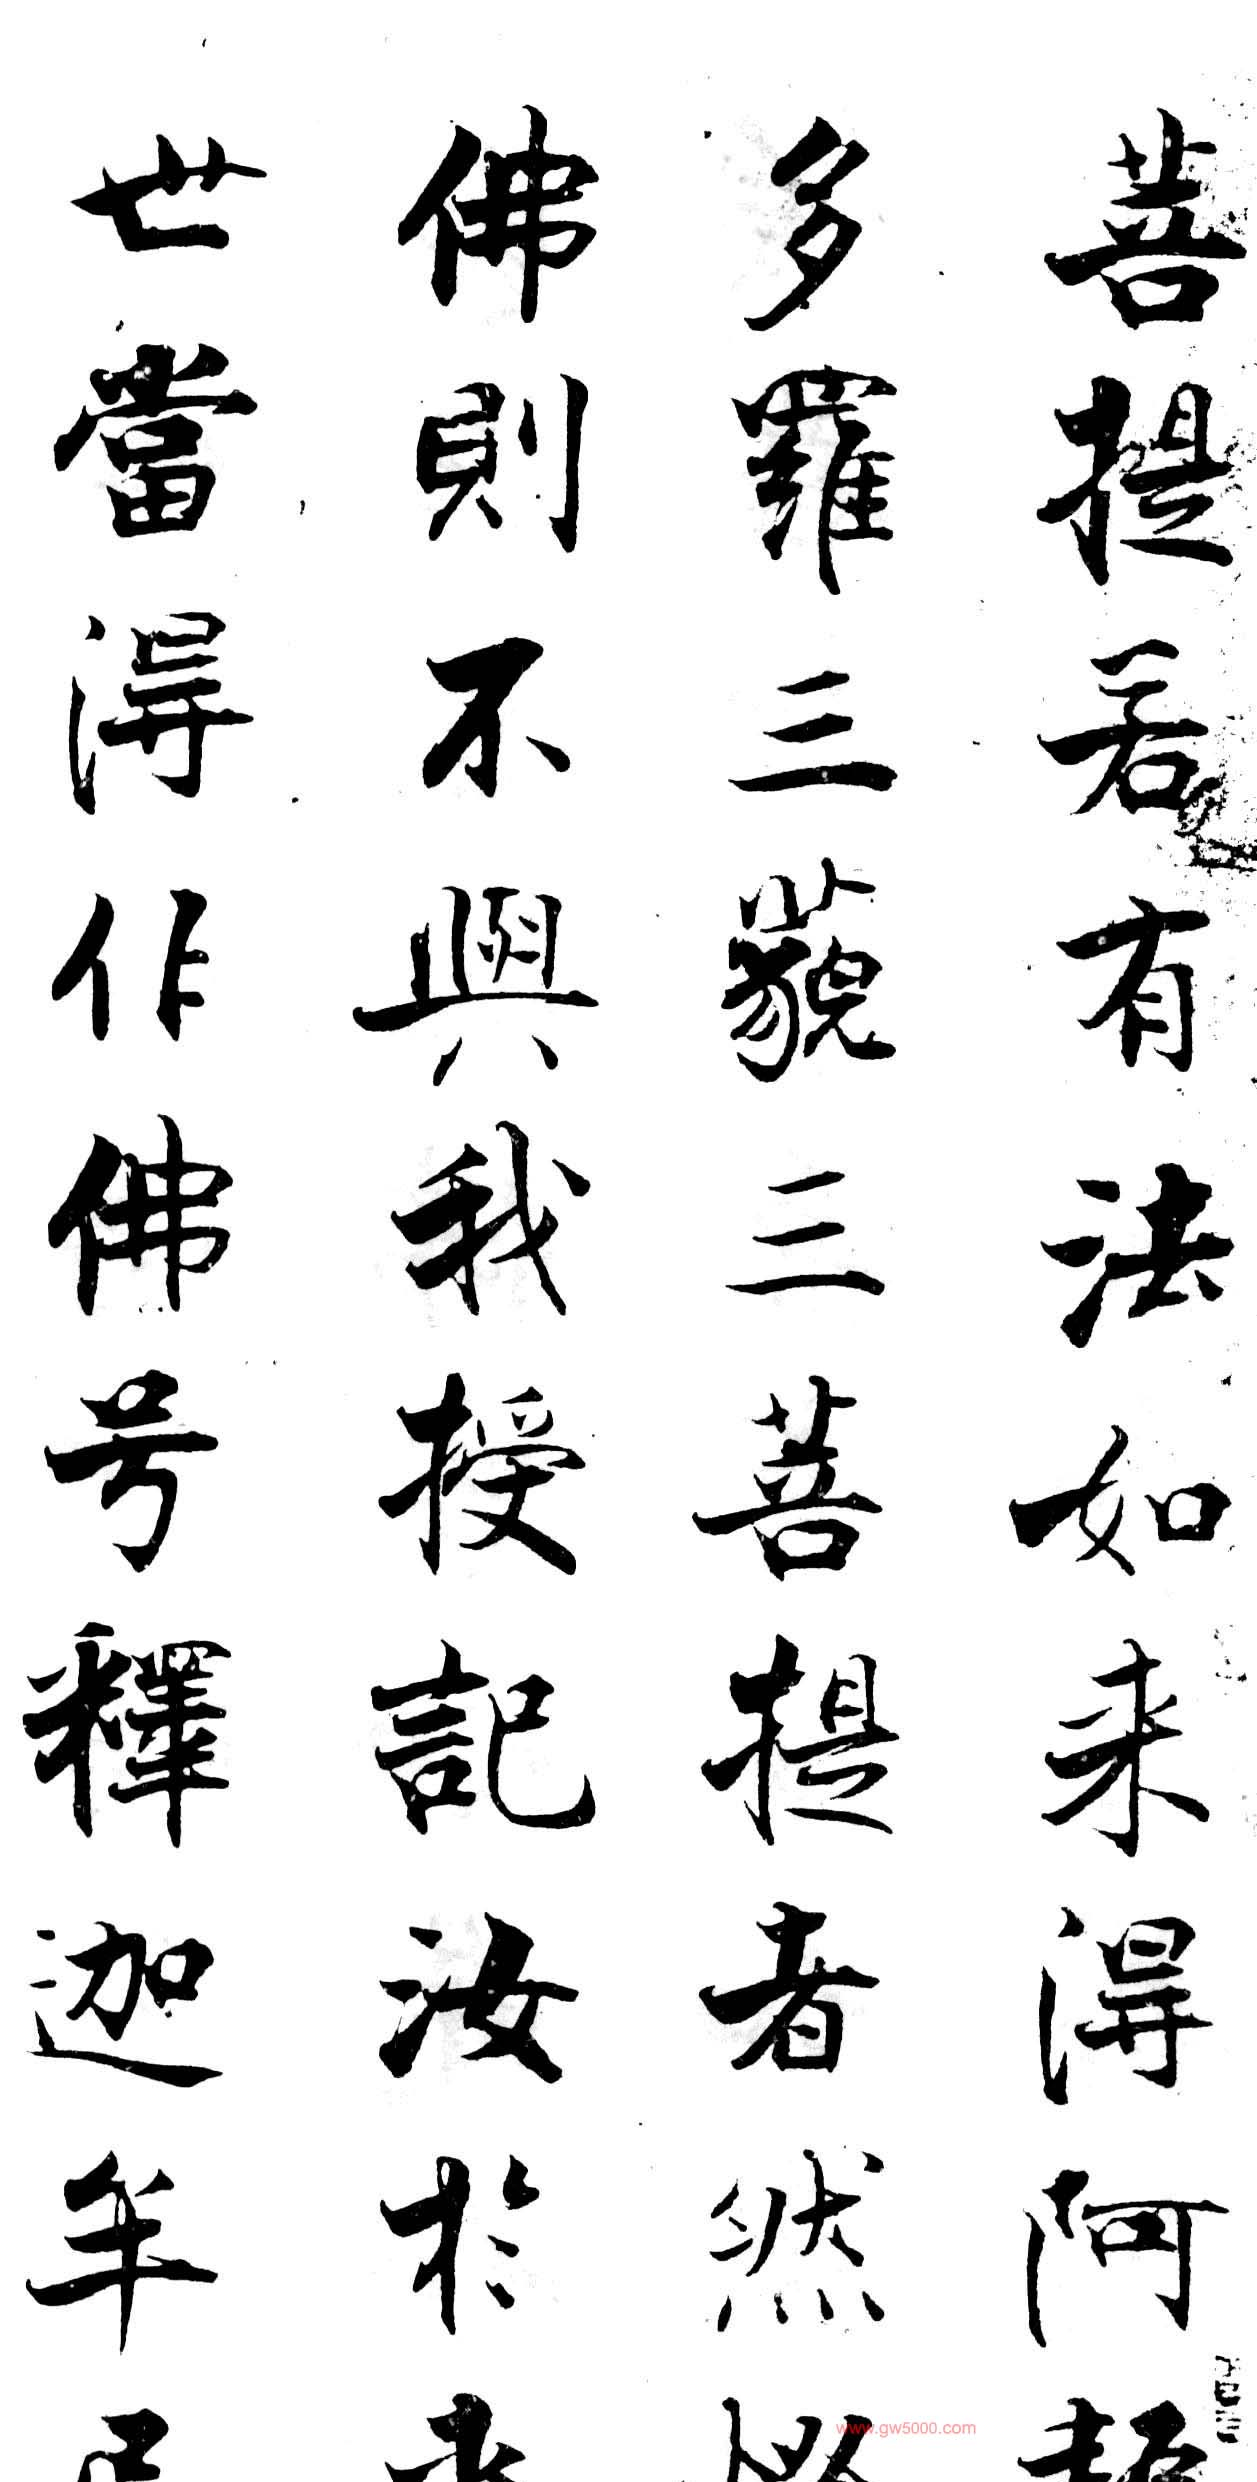 菩提若有法如来得阿
多羅三藐三菩提者然
佛則不與我授記汝於
世當得作佛号釋迦牟
www.gw5000.com